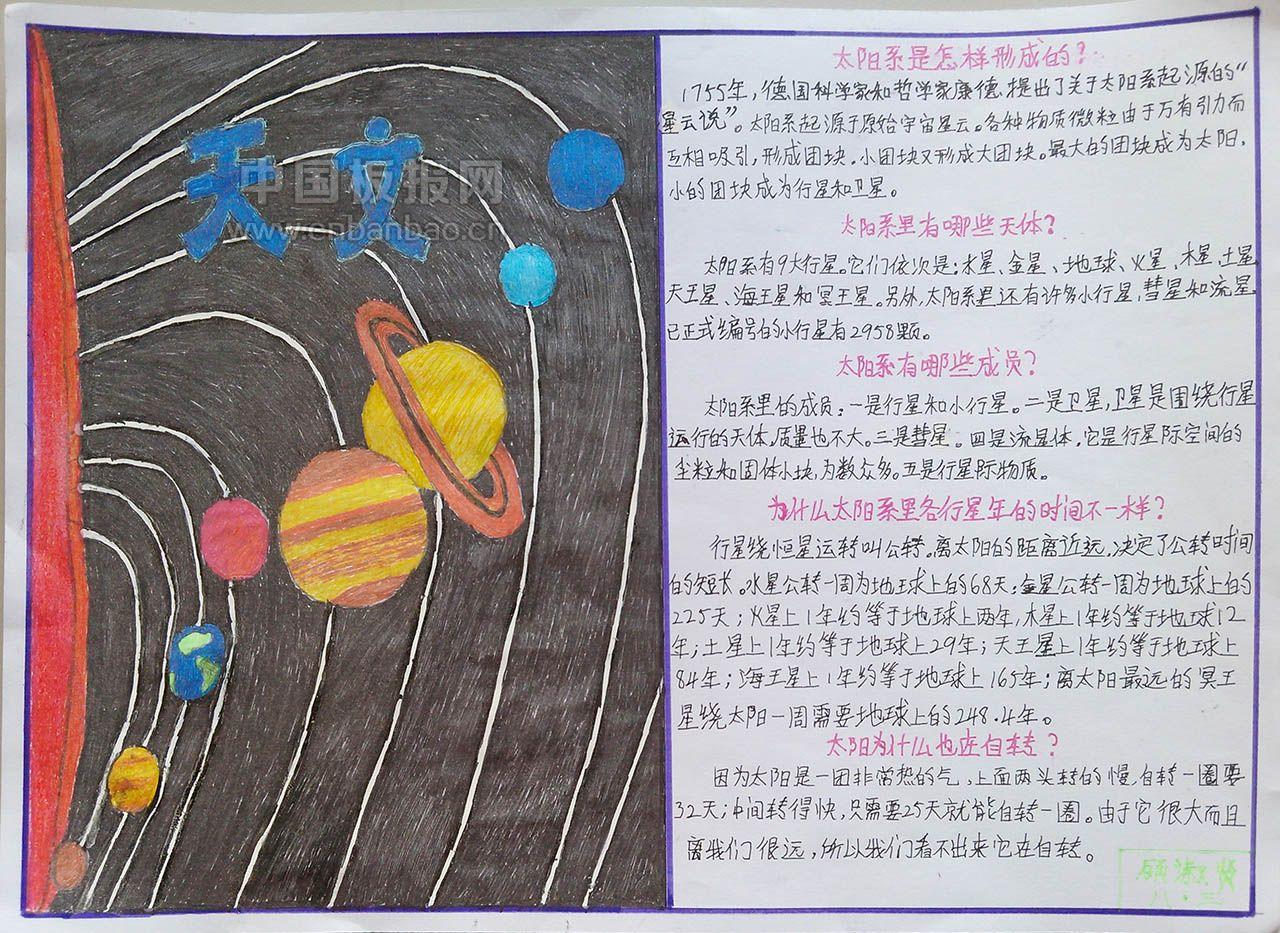 天文
中国板报网
www.cnbanbao.cn
太阳系是怎样形成的?
1755年,德国科学家和哲学家康德,提出了关于太阳系起源的“
星云说”。太阳系起源于原始宇宙星云。各种物质微粒由于万有引力而
互相吸引,形成团块。小团块又形成大团块。最大的团块成为太阳,
小的团块成为行星和卫星。
太阳系里有哪些天体?
太阳系有9大行星。它们依次是:水星、金星、地球、火星、木星、土星
天王星、海王星和冥王星。另外,太阳系里还有许多小行星,彗星和流星
已正式编号的小行星有2958颗。
太阳系有哪些成员?
太阳系里的成员:一是行星和小行星。二是卫星,卫星是围绕行星
运行的天体,质量也不大。三是彗星。四是流星体,它是行星际空间的
尘粒和固体小块,为数众多。五是行星际物质。
为什么太阳系里各行星年的时间不一样?
行星绕恒星运转叫公转。离太阳的距离近远,决定了公转时间
的短长。水星公转一周为地球上的68天;金星公转一周为地球上的
225天;火星上1年约等于地球上两年,木星上1年约等于地球12
年;土星上1年约等于地球上29年;天王星上1年约等于地球上
84年;海王星上1年约等于地球上165年;离太阳最远的冥王
星绕太阳一周需要地球上的248.4年。
太阳为什么也在自转?
因为太阳是一团非常热的气,上面两头转的慢,自转一圈要
32天;中间转得快,只需要25天就能自转一圈。由于它很大而且
离我们很远,所以我们看不出来它在自转。
顾淑贤
八·三